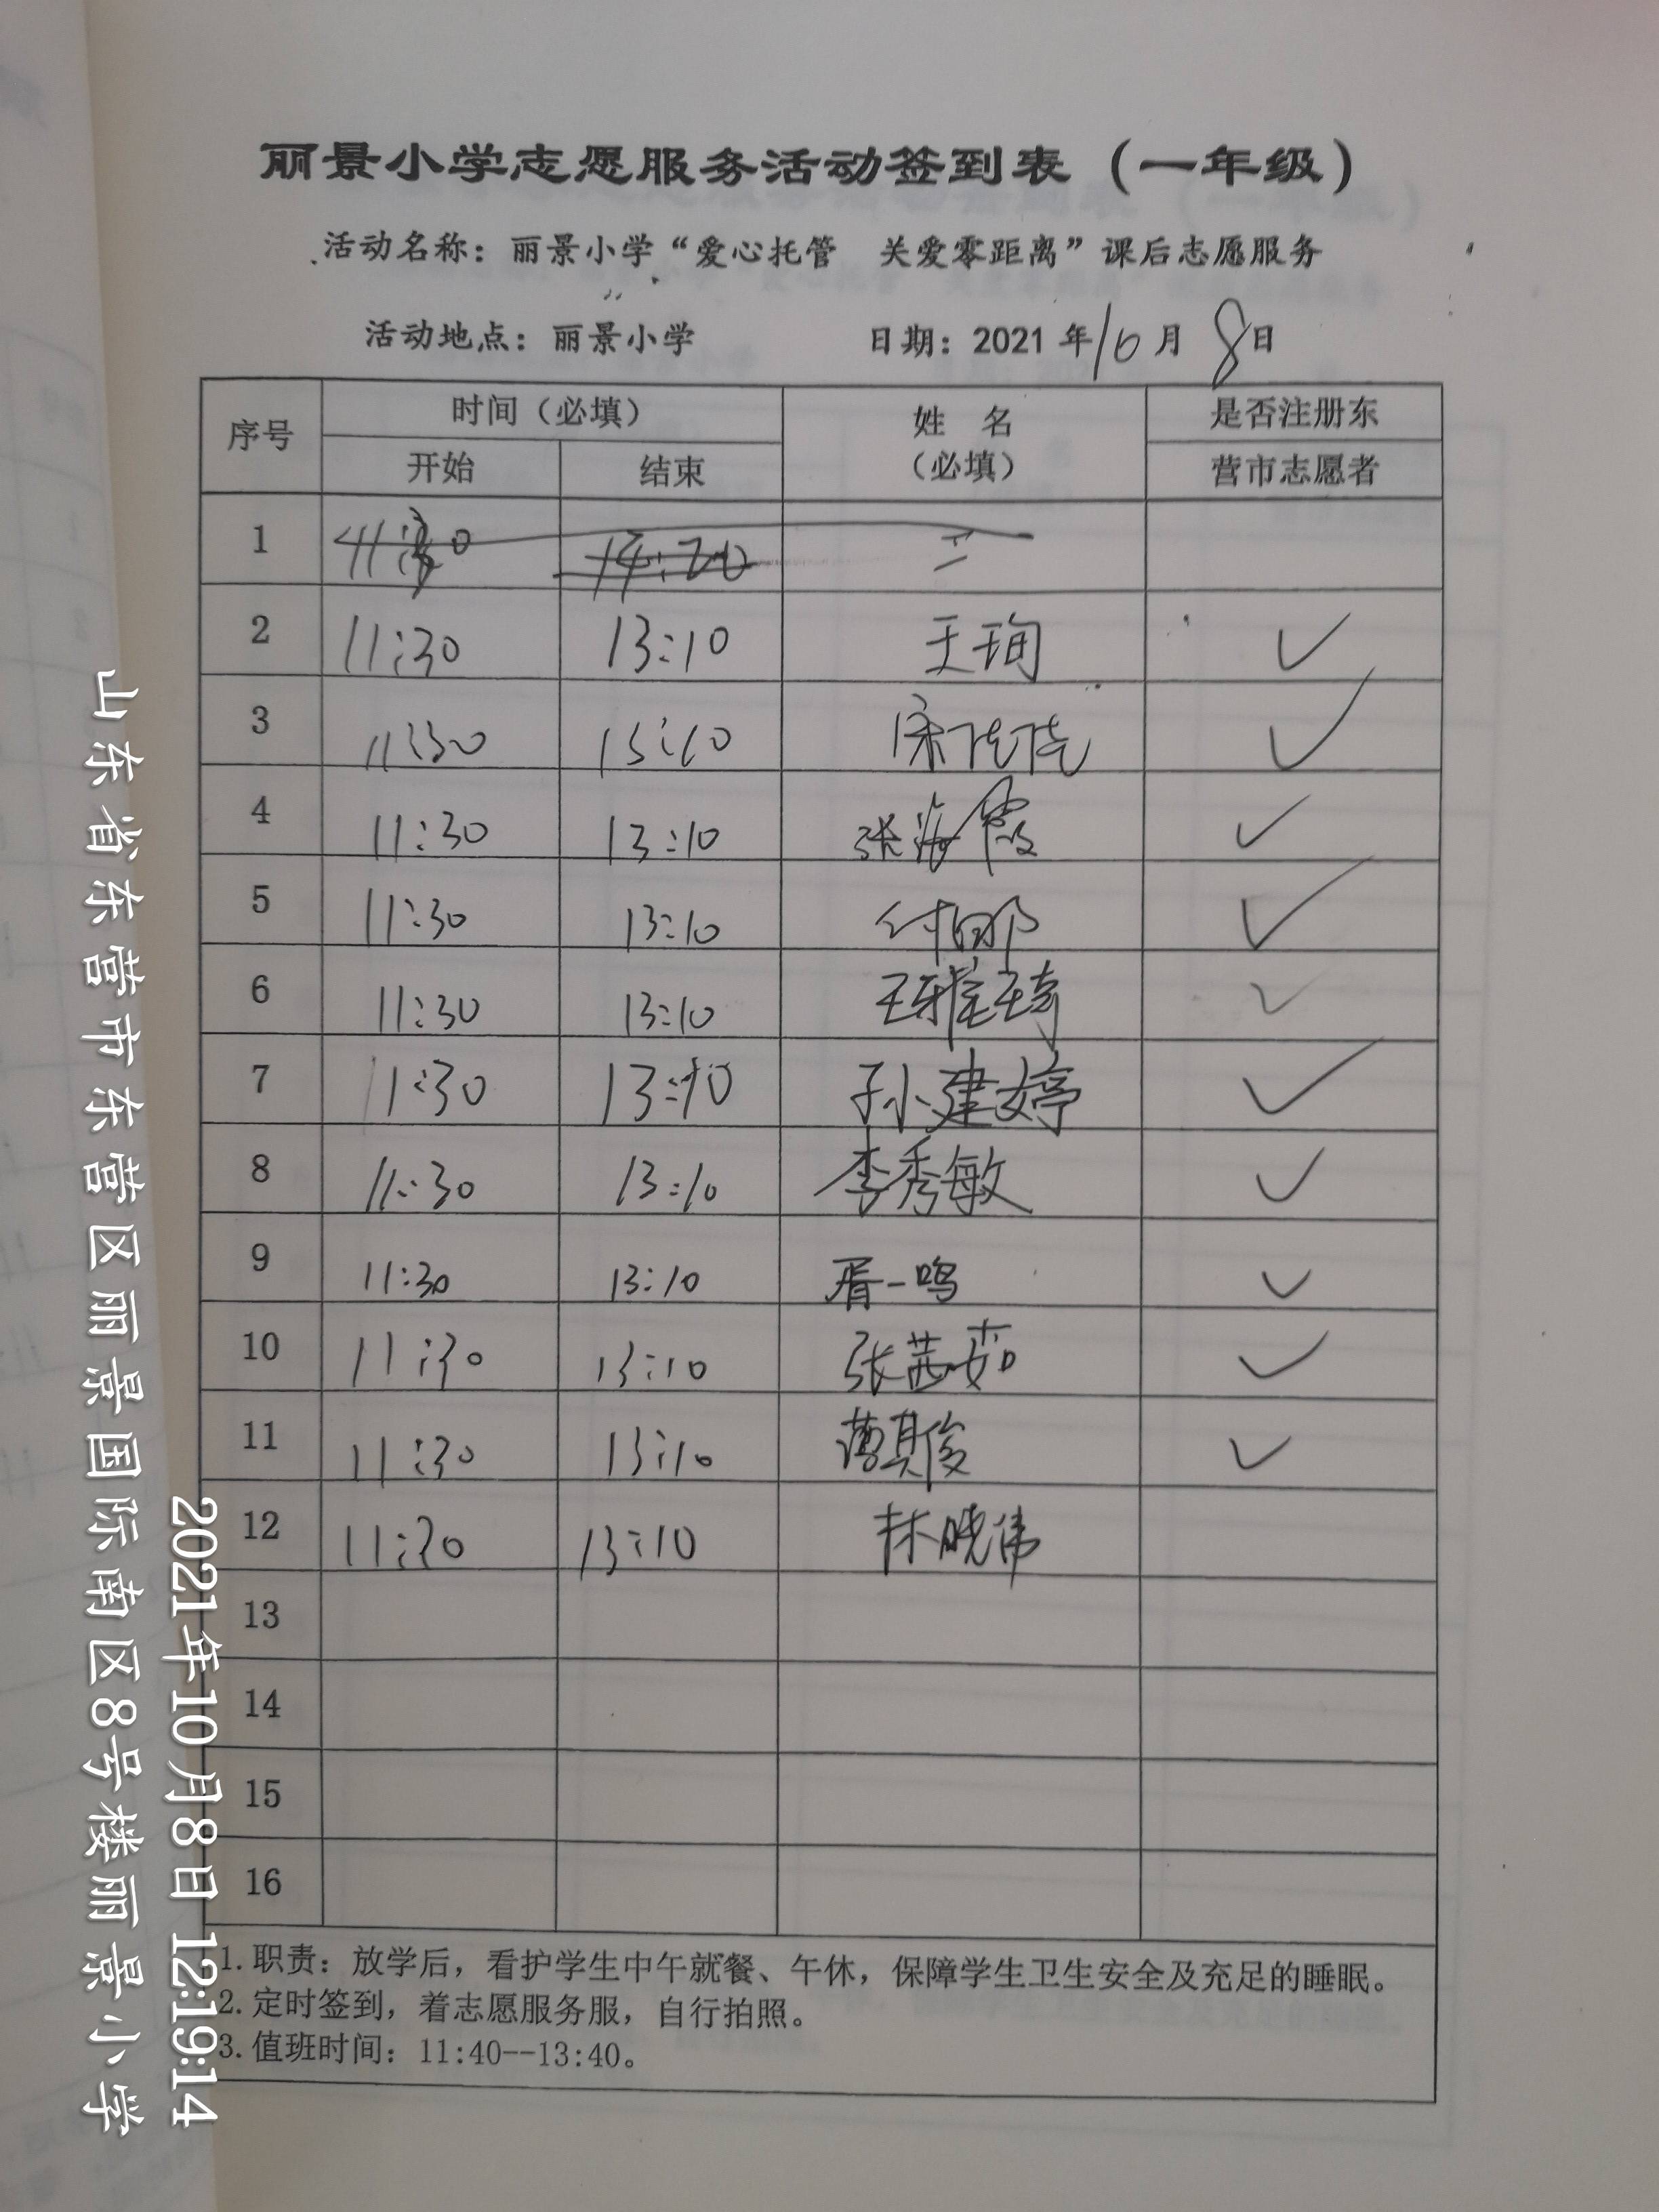 丽景小学志愿服务活动签到表（一年级）
活动名称：丽景小学“爱心托管 关爱零距离”课后志愿服务
活动地点：丽景小学 日期：2021年10月8日
序号 时间（必填） 姓 名 是否注册东
开始 结束 （必填） 营市志愿者
1 11:30 14:20
2 11:30 13:10 王珣 ✓
3 11:30 13:10 ✓
4 11:30 13:10 张海霞 ✓
5 11:30 13:10 ✓
6 11:30 13:10 王雅琦 ✓
7 11:30 13:10 孙建婷 ✓
8 11:30 13:10 李秀敏 ✓
9 11:30 13:10 胥一鸣 ✓
10 11:30 13:10 张茜茹 ✓
11 11:30 13:10 薄其俊 ✓
12 11:30 13:10 林晓伟
13
14
15
16
1.职责：放学后，看护学生中午就餐、午休，保障学生卫生安全及充足的睡眠。
2.定时签到，着志愿服务服，自行拍照。
3.值班时间：11:40--13:40。
2021年10月8日 12:19:14
山东省东营市东营区丽景国际南区8号楼丽景小学